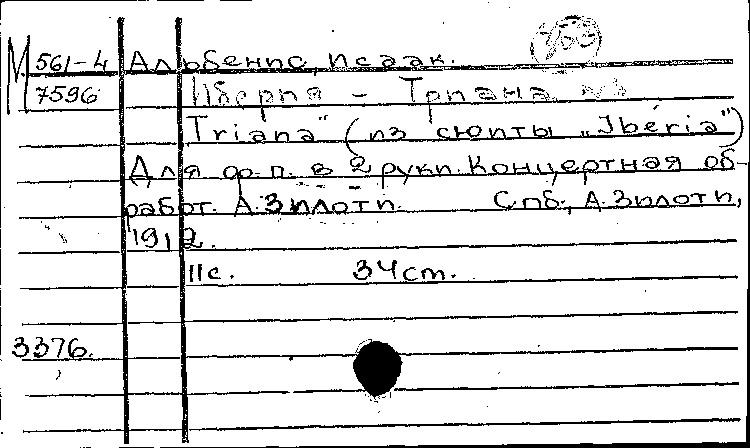 М 561-4 Альбенис, Исаак.
7596 Иберия - Триана
Triana" (из сюиты „Ibéria")
Для ф.п. в 2 руки. Концертная об-
работ. А. Зилоти. Спб., А. Зилоти,
1912.
11с. 34cm.
3376.